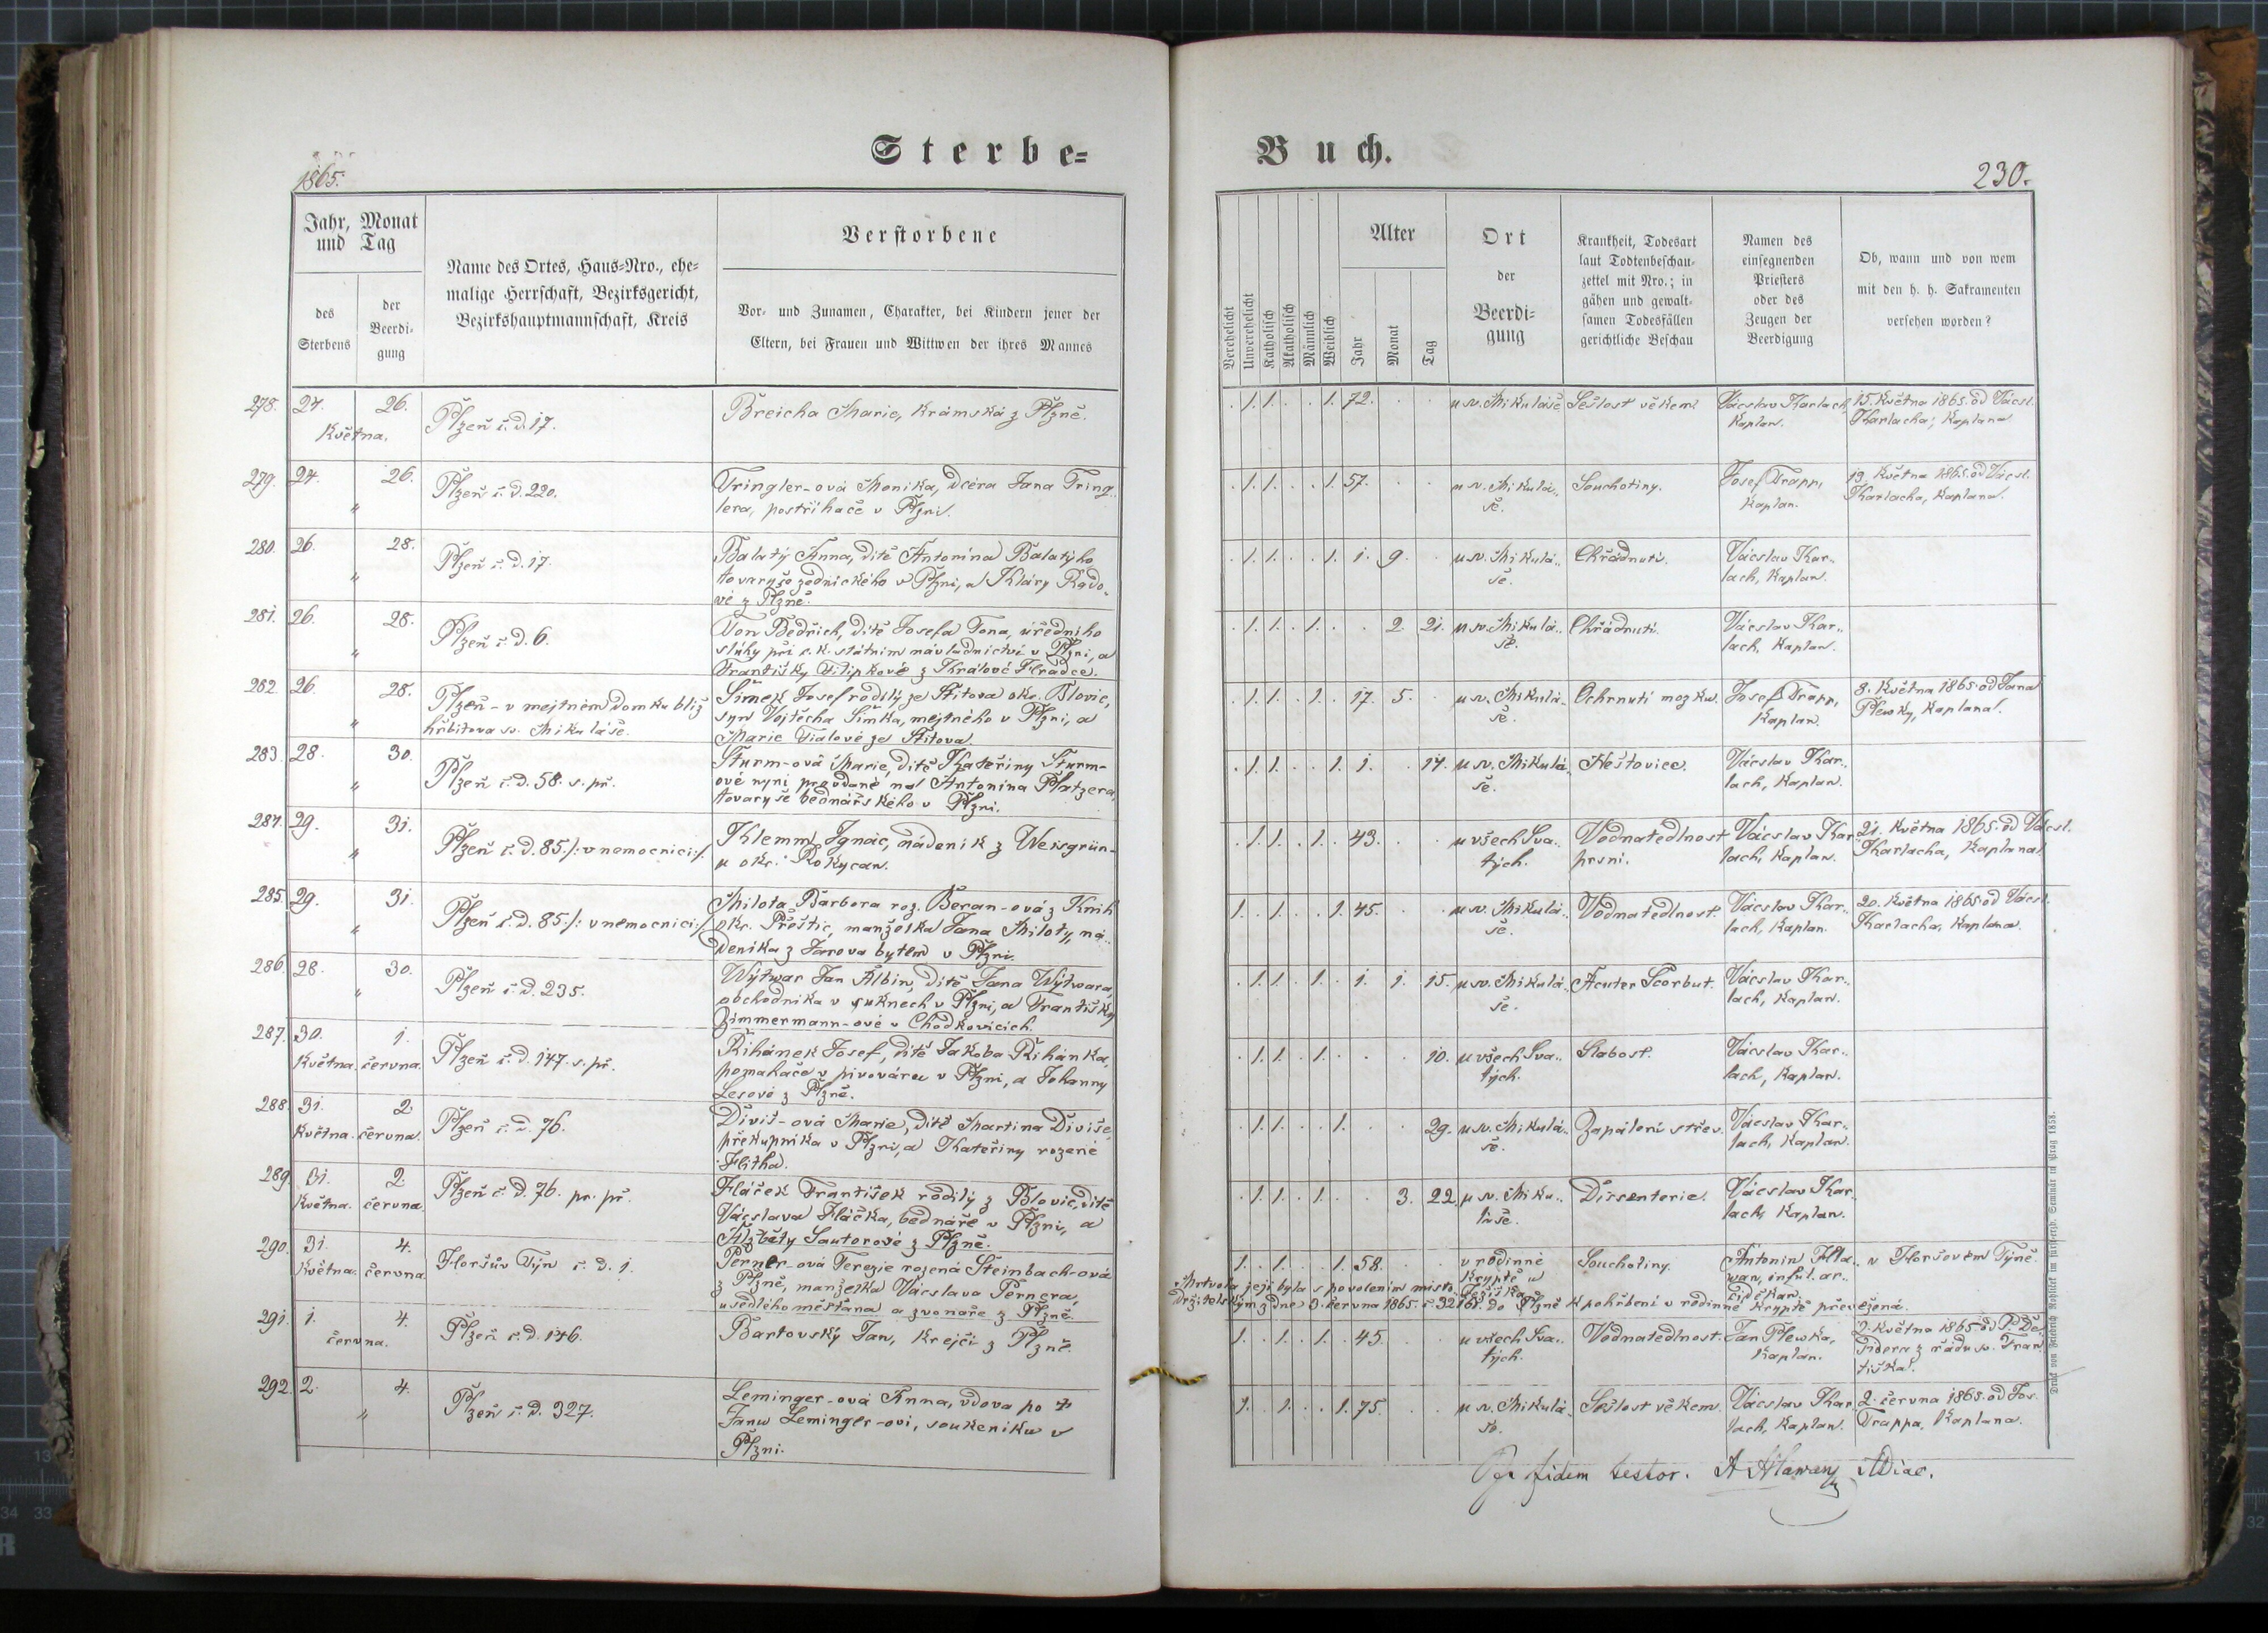 Sterbe-
1865.
Jahr, Monat
und Tag
des
Sterbens
der
Beerdi-
gung
Name des Ortes, Haus-Nro., ehe-
malige Herrschaft, Bezirksgericht,
Bezirkshauptmannschaft, Kreis
Verstorbene
Vor- und Zunamen, Charakter, bei Kindern jener der
Eltern, bei Frauen und Wittwen der ihres Mannes
278. 24. 26. Plzeň č. d. 17. Breicha Marie, krámská z Plzně.
Května.
279. 24. 26. Plzeň č. d. 220. Tringler-ová Monika, dcera Jana Tring-
„ lera, postřihače v Plzni.
280. 26. 28. Plzeň č. d. 17. Balatý Anna, dítě Antonína Balatýho
„ tovaryše zednického v Plzni, a Kláry Rado-
vé z Plzně.
281. 26. 28. Plzeň č. d. 6. Ton Bedřich, dítě Josefa Tona, úředního
„ sluhy při c. k. státním návladnictví v Plzni, a
Františky Filipkové z Králové Hradce.
282. 26. 28. Plzeň - v mejtném domku blíž Šimek Josef rodilý ze Štítova okr. Blovic,
„ hřbitova sv. Mikuláše. syn Vojtěcha Šimka, mejtného v Plzni, a
Marie Fialové ze Štítova.
283. 28. 30. Plzeň č. d. 58. s. př. Sturm-ová Marie, dítě Kateřiny Sturm-
„ ové nyní provdané na Antonína Platzera,
tovaryše bednářského v Plzni.
284. 29. 31. Plzeň č. d. 85. /: v nemocnici :/ Klemm Ignác, nádeník z
„ u okr. Rokycan.
285. 29. 31. Plzeň č. d. 85. /: v nemocnici :/ Milota Barbora roz. Beran-ová z Knih
„ okr. Přeštic, manželka Jana Miloty, ná-
deníka z Jarova bytem v Plzni.
286. 28. 30. Plzeň č. d. 235. Wýtwar Jan Albin, dítě Jana Wýtwara,
„ obchodníka v suknech v Plzni, a Františky
Zimmermann-ové v Chodkovicích.
287. 30. 1. Plzeň č. d. 147. s. př. Řihánek Josef, dítě Jakoba Řihánka,
Května. června. pomahače v pivováru v Plzni, a Johanny
Lesové z Plzně.
288. 31. 2. Plzeň č. d. 76. Diviš-ová Marie, dítě Martina Diviše,
Května. června. překupníka v Plzni, a Kateřiny rozené
289. 31. 2. Plzeň č. d. 76. pr. př. Hláček František rodilý z Blovic, dítě
Května. června. Václava Hláčka, bednáře v Plzni, a
Alžběty Sautorové z Plzně.
290. 31. 4. Horšův Týn č. d. 1. Perner-ová Terezie rozená Steinbach-ová
Května. června. z Plzně, manželka Václava Pernera,
usedlého měšťana a zvonaře z Plzně.
291. 1. 4. Plzeň č. d. 146. Bartovský Jan, krejčí z Plzně.
června.
292. 2. 4. Plzeň č. d. 327. Leminger-ová Anna, vdova po †
„ Janu Leminger-ovi, soukeníku v
Plzni.
Buch.
230.
Verehelicht
Unverehelicht
Katholisch
Akatholisch
Männlich
Weiblich
Alter
Jahr
Monat
Tag
Ort
der
Beerdi-
gung
Krankheit, Todesart
laut Todtenbeschau-
zettel mit Nro.; in
gähen und gewalt-
samen Todesfällen
gerichtliche Beschau
Namen des
einsegnenden
Priesters
oder des
Zeugen der
Beerdigung
Ob, wann und von wem
mit den h. h. Sakramenten
versehen worden?
. 1. 1. . . 1. 72. . . u sv. Mikuláše Sešlost věkem Václav Karlach, 15. Května 1865. od Václ.
Kaplan. Karlacha, Kaplana
. 1. 1. . . 1. 57. . . u sv. Mikulá- Souchotiny. Josef Trapp, 19. Května 1865. od Václ.
še. Kaplan. Karlacha, Kaplana.
. 1. 1. . . 1. 1. 9. . u sv. Mikulá- Chřadnutí. Václav Kar-
še. lach, Kaplan.
. 1. 1. . 1. . . 2. 21. u sv. Mikulá- Chřadnutí. Václav Kar-
še. lach, Kaplan.
. 1. 1. . 1. . 17. 5. . u sv. Mikulá- Ochrnutí mozku. Josef Trapp, 8. Května 1865. od Jana
še. Kaplan. Plewky, Kaplana.
. 1. 1. . . 1. 1. . 14. u sv. Mikulá- Neštovice. Václav Kar-
še. lach, Kaplan.
. 1. 1. . 1. . 43. . . u všech Sva- Vodnatedlnost Václav Kar- 21. Května 1865. od Václ.
tých. prsní. lach, Kaplan. Karlacha, Kaplana.
1. . 1. . . 1. 45. . . u sv. Mikulá- Vodnatedlnost. Václav Kar- 20. Května 1865 od Václ.
še. lach, Kaplan. Karlacha, Kaplana.
. 1. 1. . 1. . 1. 1. 15. u sv. Mikulá- Acuter Scorbut. Václav Kar-
še. lach, Kaplan.
. 1. 1. . 1. . . . 10. u všech Sva- Slabost. Václav Kar-
tých. lach, Kaplan.
. 1. 1. . . 1. . . 29. u sv. Mikulá- Zapálení střev. Václav Kar-
še. lach, Kaplan.
. 1. 1. . 1. . . 3. 22. u sv. Miku- Dissenterie. Václav Kar-
láše. lach, Kaplan.
1. . 1. . . 1. 58. . . v rodinné Souchotiny. Antonín Hla- v Horšovém Týně.
kryptě u wan, inful. ar-
Ježíška. ciděkan.
Mrtvola její byla s povolením místo-
držitelským z dne 3. června 1865. č. 32161. do Plzně k pohřbení v rodinné kryptě převezená.
1. . 1. . 1. . 45. . . u všech Sva- Vodnatedlnost. Jan Plewka, 2. Května 1865. od P. De-
tých. Kaplan. sidera z řádu sv. Fran-
tiška.
1. . 1. . . 1. 75. . . u sv. Mikulá- Sešlost věkem. Václav Kar- 2. června 1865. od Jos.
še. lach, Kaplan. Trappa, Kaplana.
fidem testor. A Hlawan
Druck von Friedrich Rohliček im fürsterzb. Seminär in Prag 1858.